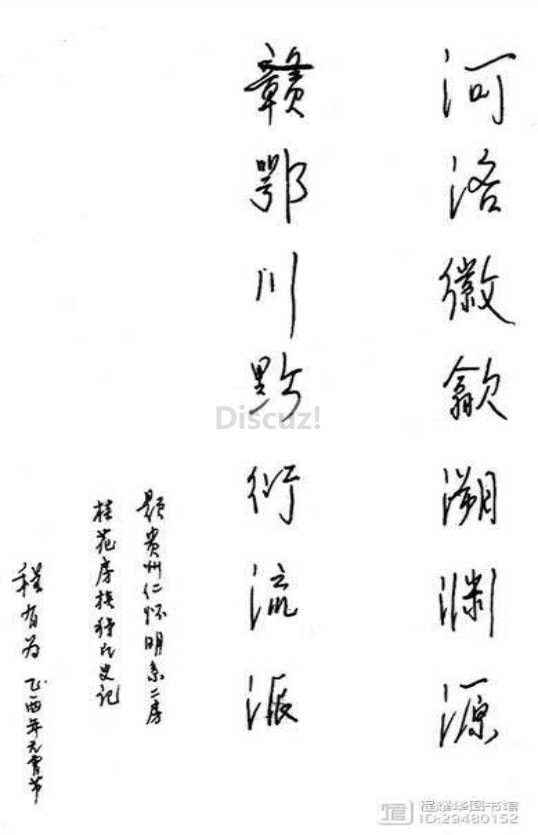 河洛徽歙溯渊源
赣鄂川黔衍流派
题贵州仁怀明系二房
桂花房族程氏史记
程有为 乙酉年元宵节
Discuz!
程耀华图书馆
ID:29480152